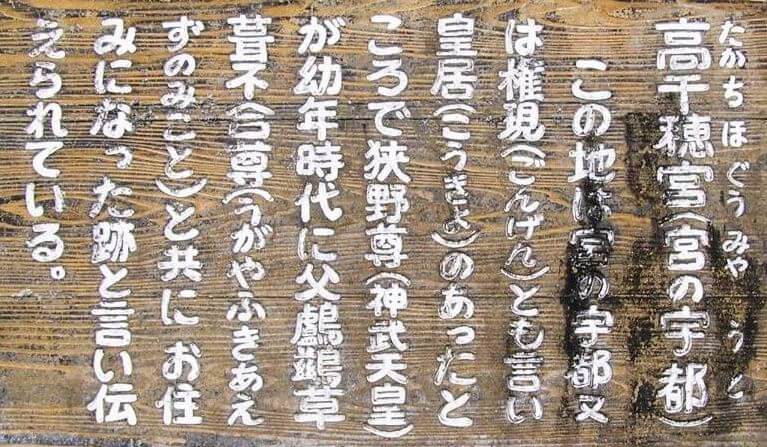 たかちほぐうみや うと
高千穂宮(宮の宇都)
この地は宮の宇都又
は権現(ごんげん)とも言い
皇居(こうきょ)のあったと
ころで狭野尊(神武天皇)
が幼年時代に父鸕鶿草
葺不合尊(うがやふきあえ
ずのみこと)と共にお住
みになった跡と言い伝
えられている。